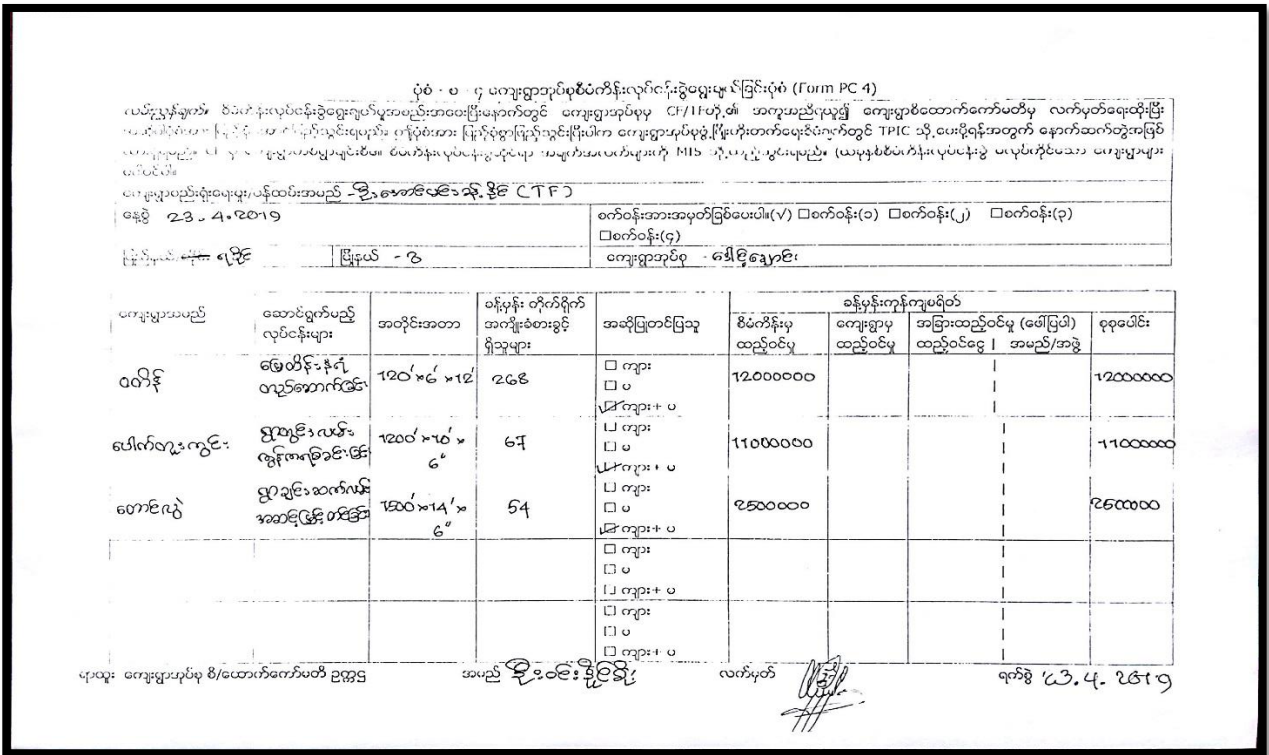 ပုံစံ - စ - ၄ ကျေးရွာအုပ်စုစီမံကိန်းလုပ်ငန်းခွဲရွေးချယ်ခြင်းပုံစံ (Form PC 4)
လမ်းညွှန်ချက်၊ စီမံကိန်းလုပ်ငန်းခွဲရွေးချယ်မှုအစည်းအဝေးပြီးနောက်တွင် ကျေးရွာအုပ်စုမှ CF/TFတို့၏ အကူအညီရယူ၍ ကျေးရွာစီထောက်ကော်မတီမှ လက်မှတ်ရေးထိုးပြီး
ဤပုံစံအား ပြည့်စုံစွာဖြည့်သွင်းပြီးပါက ကျေးရွာအုပ်စုဖွံ့ဖြိုးတိုးတက်ရေးစီမံချက်တွင် TPIC သို့ ပေးပို့ရန်အတွက် နောက်ဆက်တွဲအဖြစ်
အချက်အလက်များကို MIS သို့ ထည့်သွင်းရမည်။ (ယခုနှစ်စီမံကိန်းလုပ်ငန်းခွဲ မလုပ်ကိုင်သော ကျေးရွာများ
မပါဝင်ပါ။
ကျေးရွာစည်းရုံးရေးမှူး/ပန်ထပ်းအမည် - ဦးအောင်မင်းခန့်နိုင် (CTF)
နေ့စွဲ 23.4.2019 စက်ဝန်းအားအမှတ်ခြစ်ပေးပါ။(√) □စက်ဝန်း(၁) □စက်ဝန်း(၂) □စက်ဝန်း(၃)
□စက်ဝန်း(၄)
ပြည်နယ် ရခိုင် မြို့နယ် - ကျေးရွာအုပ်စု -
ခန့်မှန်းကုန်ကျစရိတ်
ကျေးရွာအမည် ဆောင်ရွက်မည့် လုပ်ငန်းများ အတိုင်းအတာ ခန့်မှန်း တိုက်ရိုက် အကျိုးခံစားခွင့် ရှိသူများ အဆိုပြုတင်ပြသူ စီမံကိန်းမှ ထည့်ဝင်မှု ကျေးရွာမှ ထည့်ဝင်မှု အခြားထည့်ဝင်မှု (ဖော်ပြပါ) ထည့်ဝင်ငွေ | အမည်/အဖွဲ့ စုစုပေါင်း
မြေထိန်းနံရံ
တည်ဆောက်ခြင်း 120'×6'×12' 268 □ ကျား □ မ ☑ ကျား+ မ 12000000 12000000
ပေါက်တူးကွင်း ရွာတွင်းလမ်း
ကွန်ကရစ်ခင်းခြင်း 1200'×10'×6" 67 □ ကျား □ မ ☑ ကျား+ မ 11000000 11000000
ရွာချင်းဆက်လမ်း
အဆင့်မြှင့်တင်ခြင်း 1500'×14'×6" 54 □ ကျား □ မ ☑ ကျား+ မ 2500000 2500000
□ ကျား
□ မ
□ ကျား+ မ
□ ကျား
□ မ
□ ကျား+ မ
ရာထူး ကျေးရွာအုပ်စု စီ/ထောက်ကော်မတီ ဥက္ကဌ အမည် လက်မှတ် ရက်စွဲ 23.4.2019